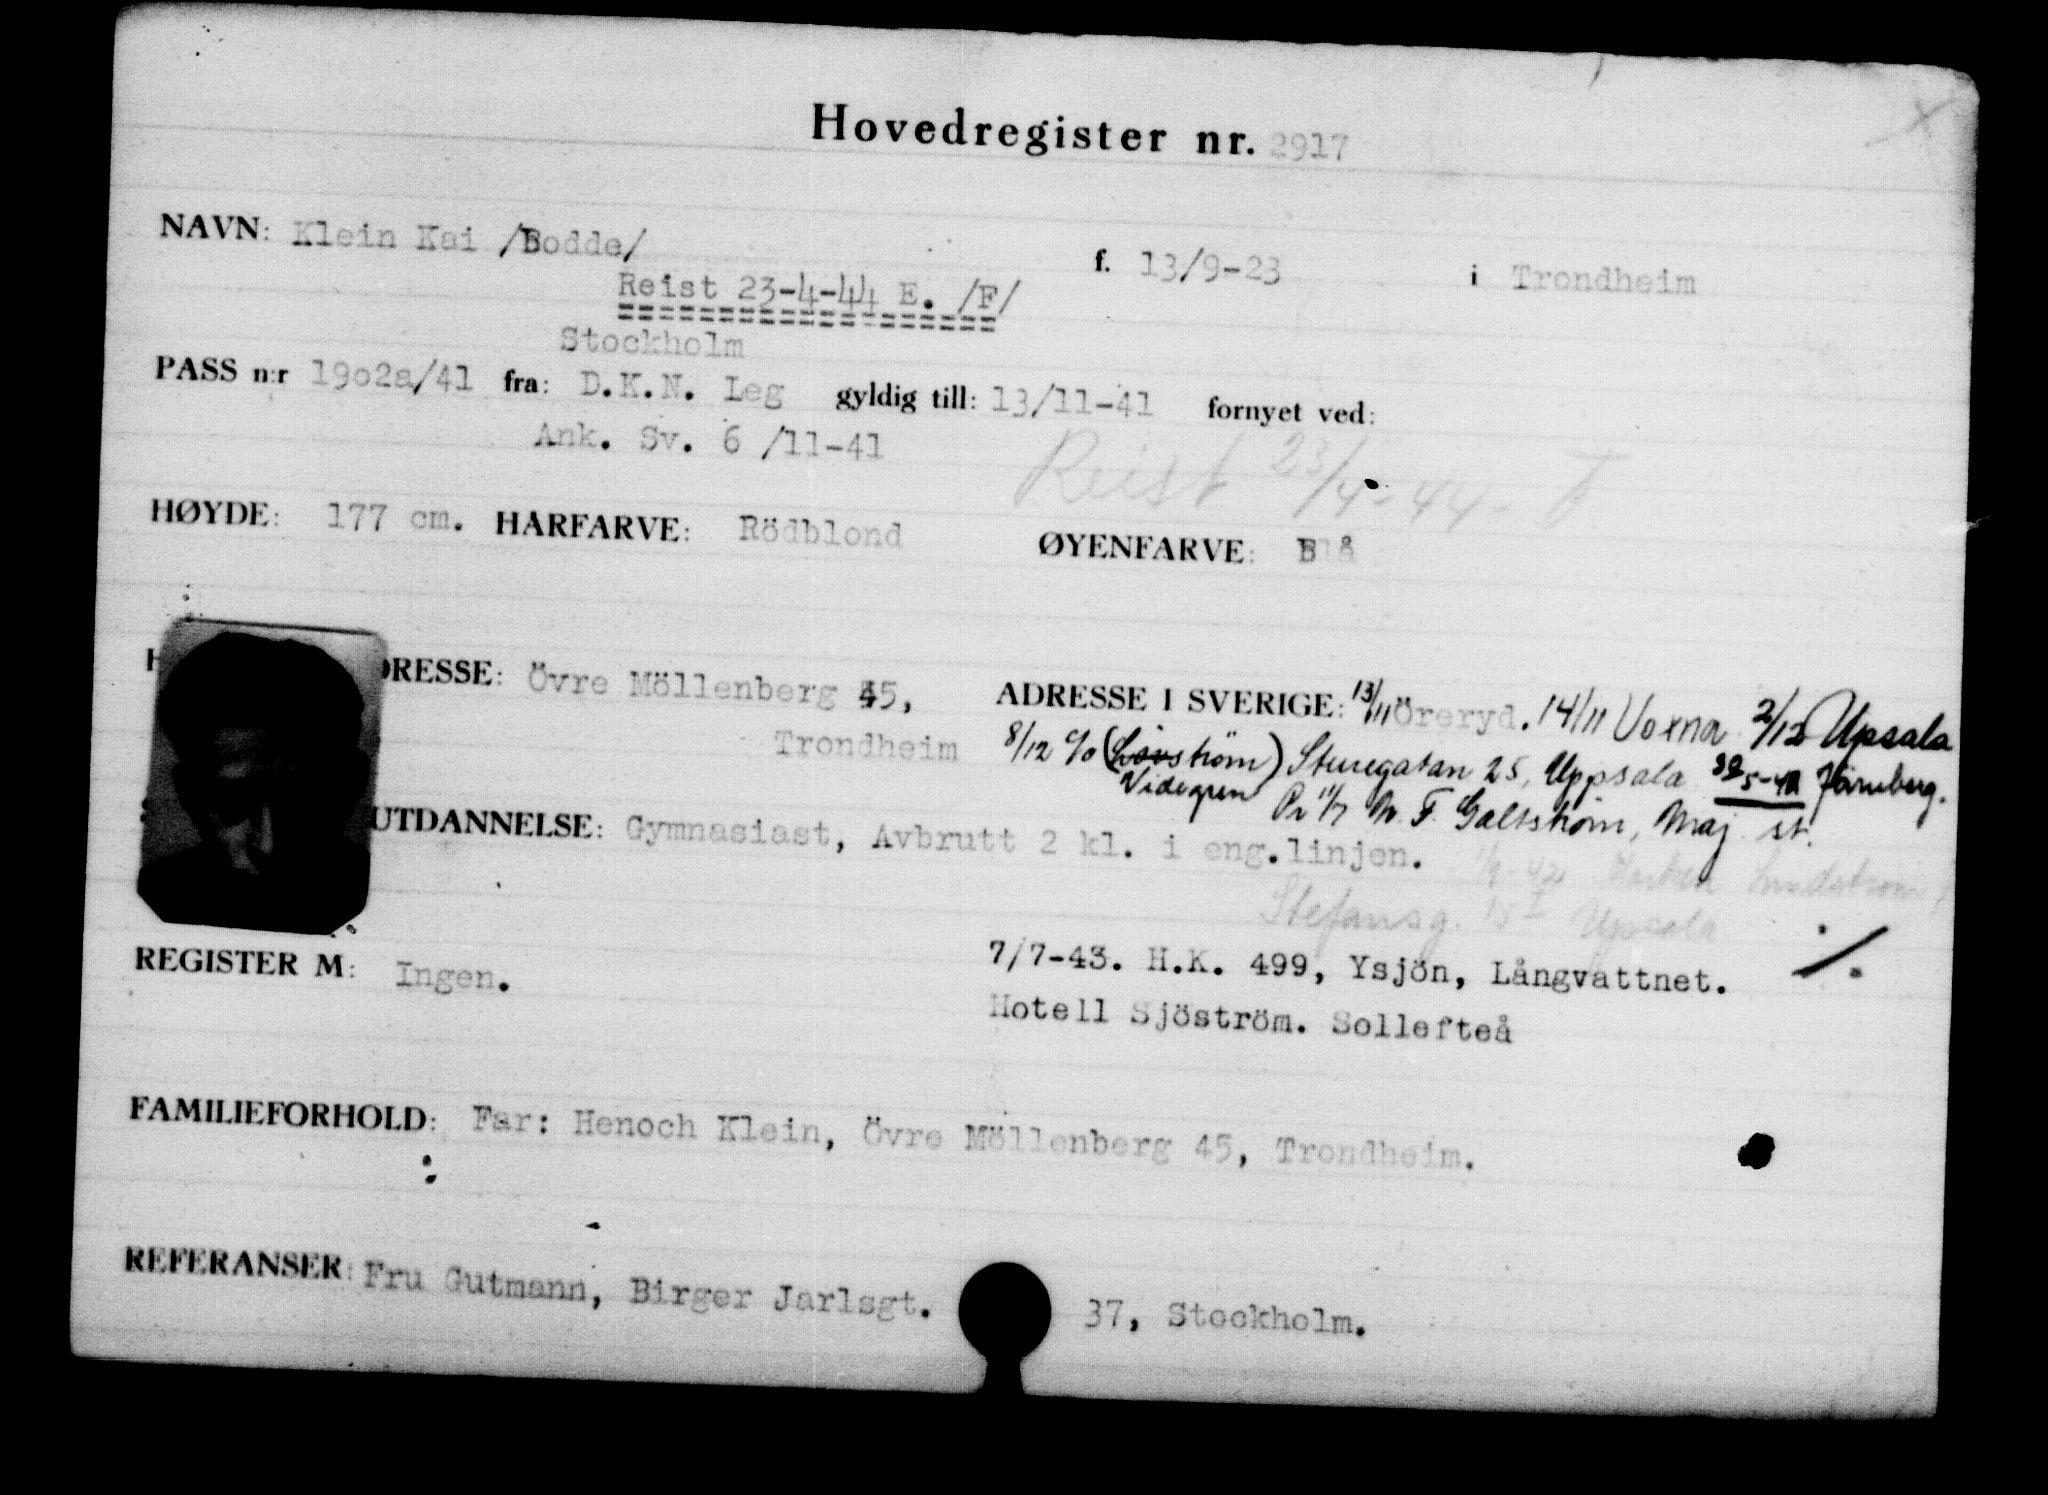 Hovedregister nr. 2917
NAVN: Klein Kai /Bodde/
f. 13/9-23 i Trondheim
Reist 23-4-44 E. /F/
Stockholm
PASS n:r 19o2a/41 fra: D.K.N. Leg gyldig till: 13/11-41 fornyet ved:
Ank. Sv. 6 /11-41
Reist 23/4-44- F
HØYDE: 177 cm. HARFARVE: Rödblond ØYENFARVE: Blå
DRESSE: Övre Möllenberg 45,
Trondheim
ADRESSE I SVERIGE: 13/11 Öreryd. 14/11 Voxna 2/12 Upsala
8/12 c/o (Lövström) Sturegatan 25, Uppsala 5-42 Järnberg.
Videgren Pr 11/7 F. Galtström, Maj st.
UTDANNELSE: Gymnasiast, Avbrutt 2 kl. i eng.linjen.
Lundström
Stefansg. 15 I Upsala
REGISTER M: Ingen.
7/7-43. H.K. 499, Ysjön, Långvattnet. ./.
Hotell Sjöström. Sollefteå
FAMILIEFORHOLD: Far: Henoch Klein, Övre Möllenberg 45, Trondheim.
REFERANSER: Fru Gutmann, Birger Jarlsgt. 37, Stockholm.